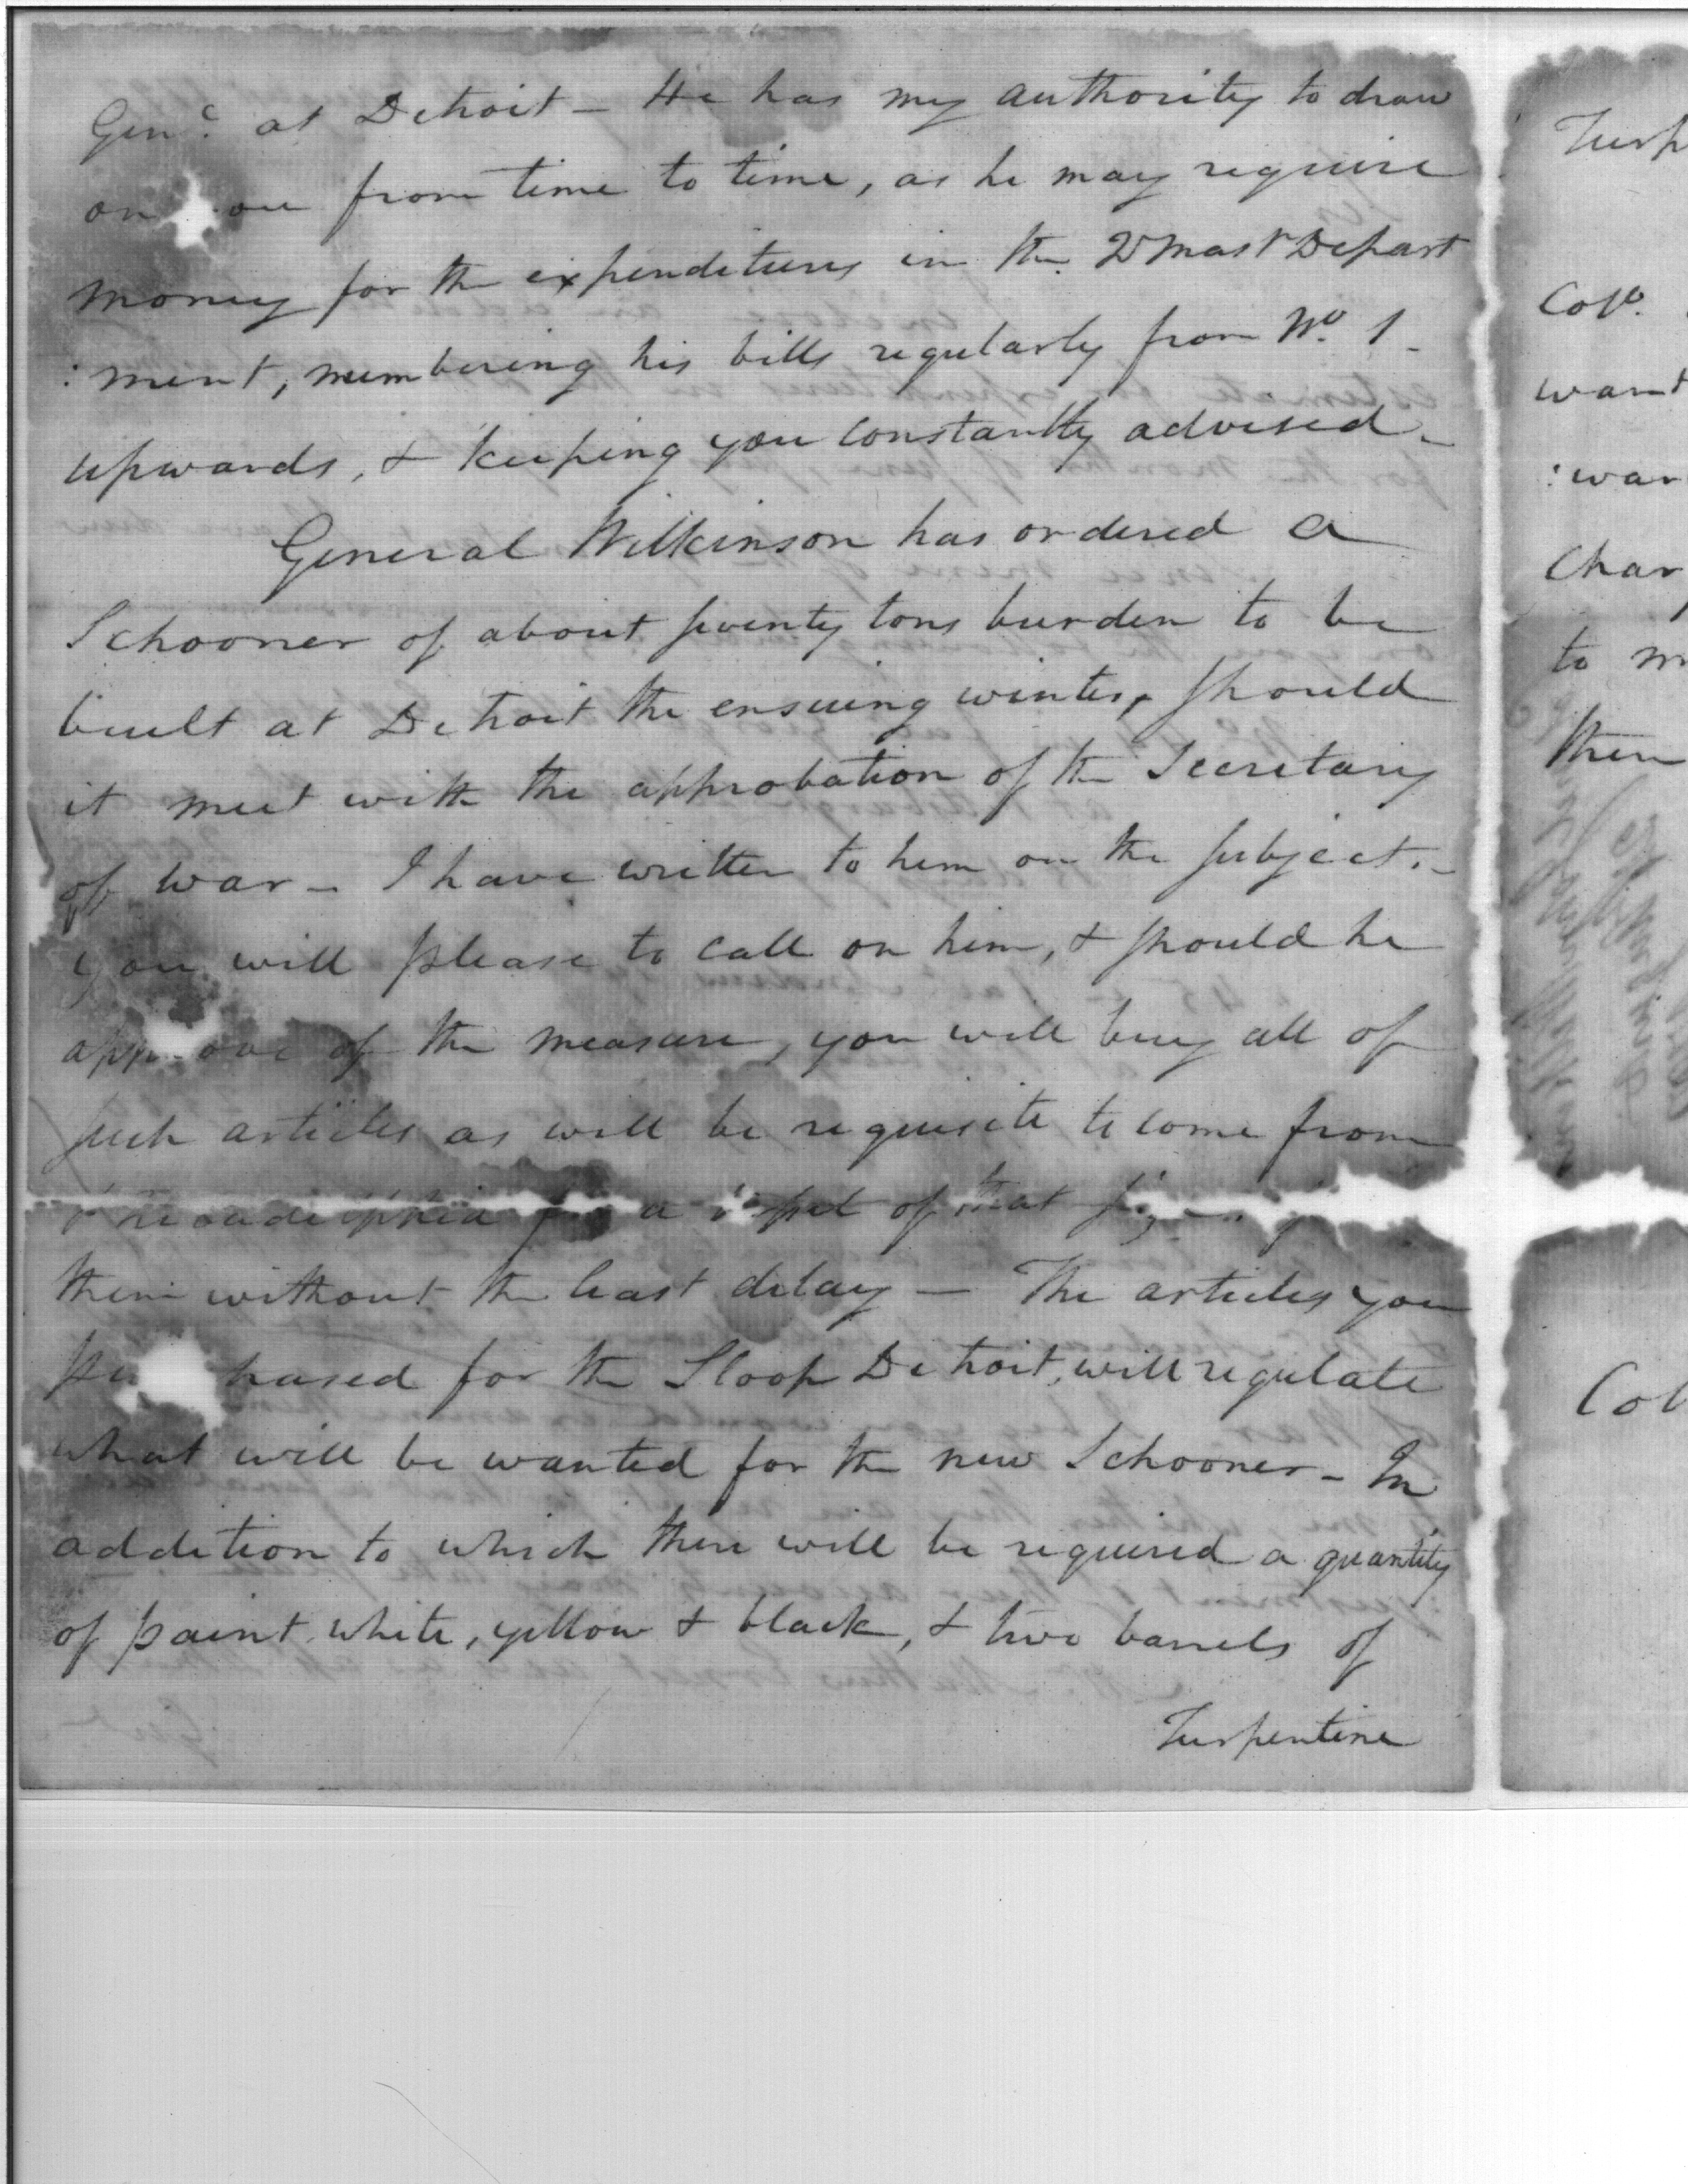 Genl. at Detroit - He has my authority to draw
on you from time to time, as he may require
money for the expenditures in the Qr Mastr Depart
:ment, numbering his bills regularly from No. 1 -
upwards, & keeping you constantly advised -
General Wilkinson has ordered a
Schooner of about seventy tons burden to be
built at Detroit the ensuing winter, should
it meet with the approbation of the Secretary
of War - I have written to him on the subject. -
you will please to call on him, & should he
approve of the measure, you will buy all of
such articles as will be requisite to come from
Philadelphia for a vessel of that
them without the least delay - The articles you
purchased for the Sloop Detroit, will regulate
what will be wanted for the new Schooner - In
addition to which there will be required a quantity
of paint white, yellow & black, & two barrels of
Turpentine
Turp
Colo.
want
:war
Char
to m
them
Col